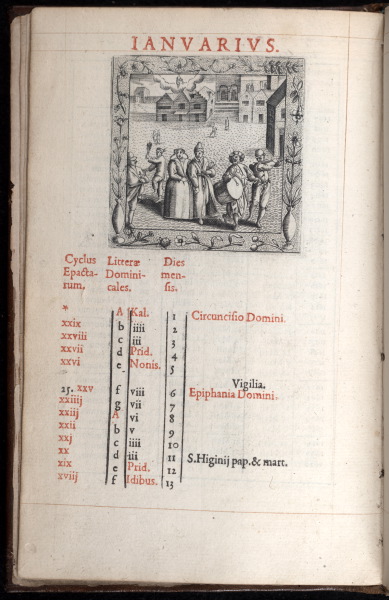 IANVARIVS.
Cyclus Litteræ Dies
Epacta- Domini- men-
rum, cales. sis.
* A Kal. 1 Circuncisio Domini.
xxix b iiii 2
xxviii c iii 3
xxvii d Prid. 4
xxvi e Nonis. 5
Vigilia.
25. xxv f viii 6 Epiphania Domini.
xxiiij g vii 7
xxiij A vi 8
xxii b v 9
xxj c iiii 10
xx d iii 11 S.Higinij pap.& mart.
xix e Prid. 12
xviij f Idibus. 13